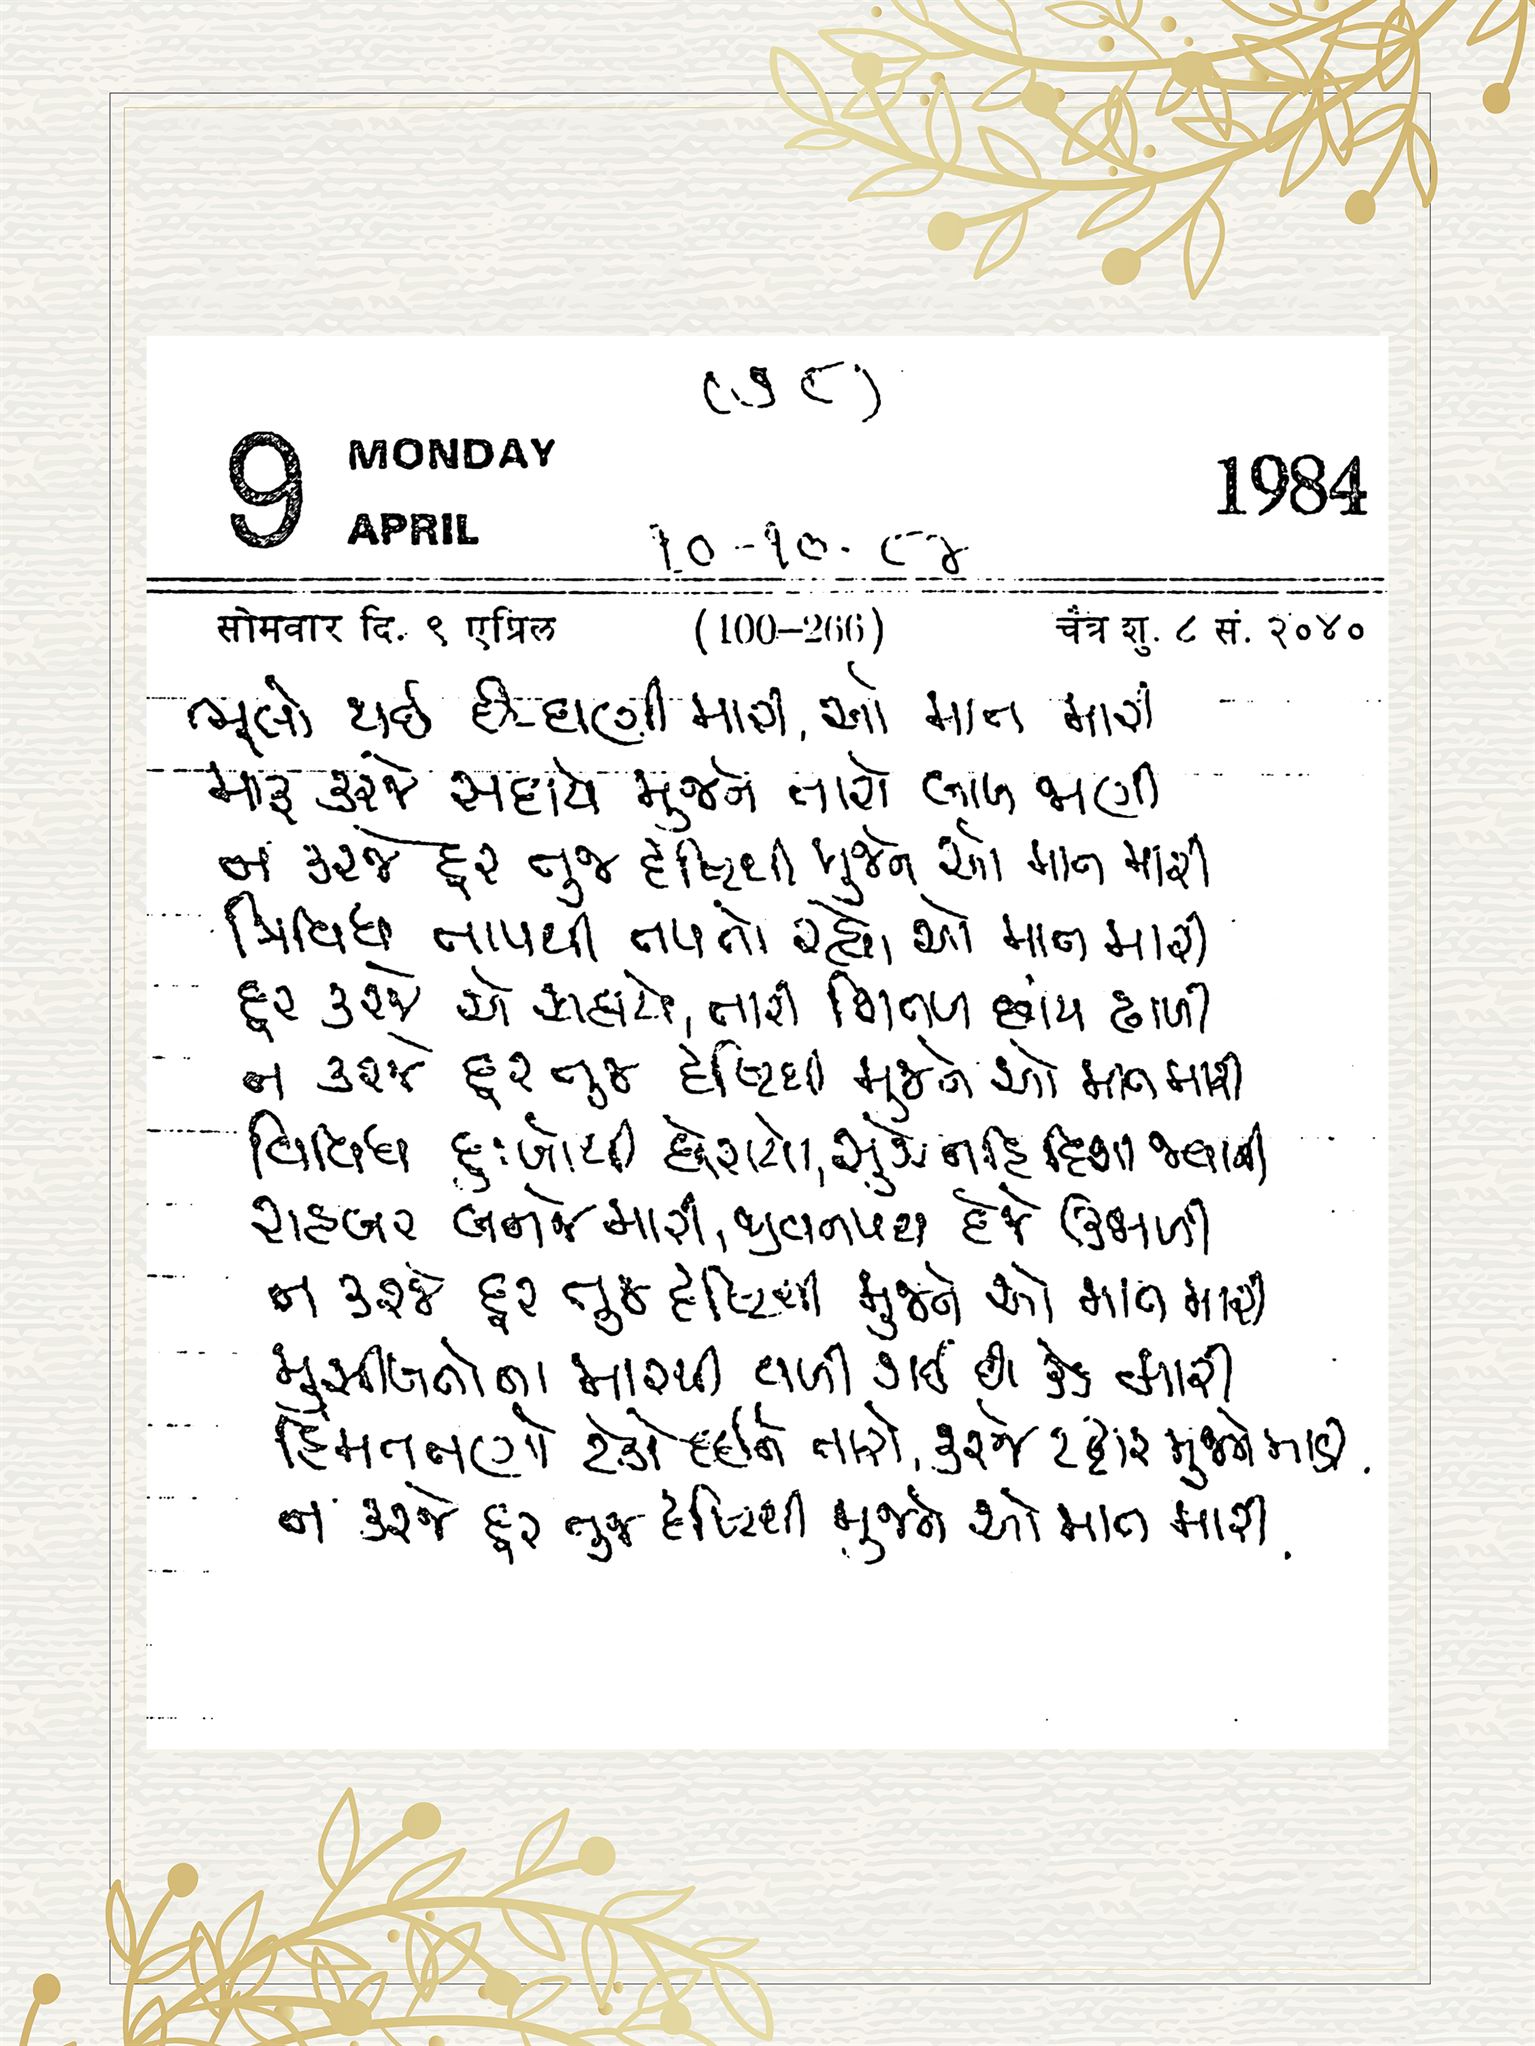 (૭૮)
9 MONDAY
APRIL
1984
૧૦-૧૦-૮૪
सोमवार दि. ९ एप्रिल (100–266) चैत्र शु. ८ सं. २०४०
ભૂલો થઈ હશે ઘણી મારી, ઓ માત મારી
માફ કરજે સદાયે મુજને તારો બાળ ગણી
ન કરજે દૂર તુજ દૃષ્ટિથી મુજને ઓ માત મારી
ત્રિવિધ તાપથી તપતો રહ્યો, ઓ માત મારી
દૂર કરજે એ સદાયે, તારી શિતળ છાંય ઢાળી
ન કરજે દૂર તુજ દૃષ્ટિથી મુજને ઓ માત મારી
વિવિધ દુઃખોથી ઘેરાયો, સુઝે નહિ દિશા જવાની
રાહબર બનજે મારી, જીવનપથ દેજે ઉજાળી
ન કરજે દૂર તુજ દૃષ્ટિથી મુજને ઓ માત મારી
મુસીબતોના મારથી વળી ગઈ છે કેડ મારી
હિંમતતણો ટેકો દઈને તારો, કરજે ટટ્ટાર મુજને માડી.
ન કરજે દૂર તુજ દૃષ્ટિથી મુજને ઓ માત મારી.